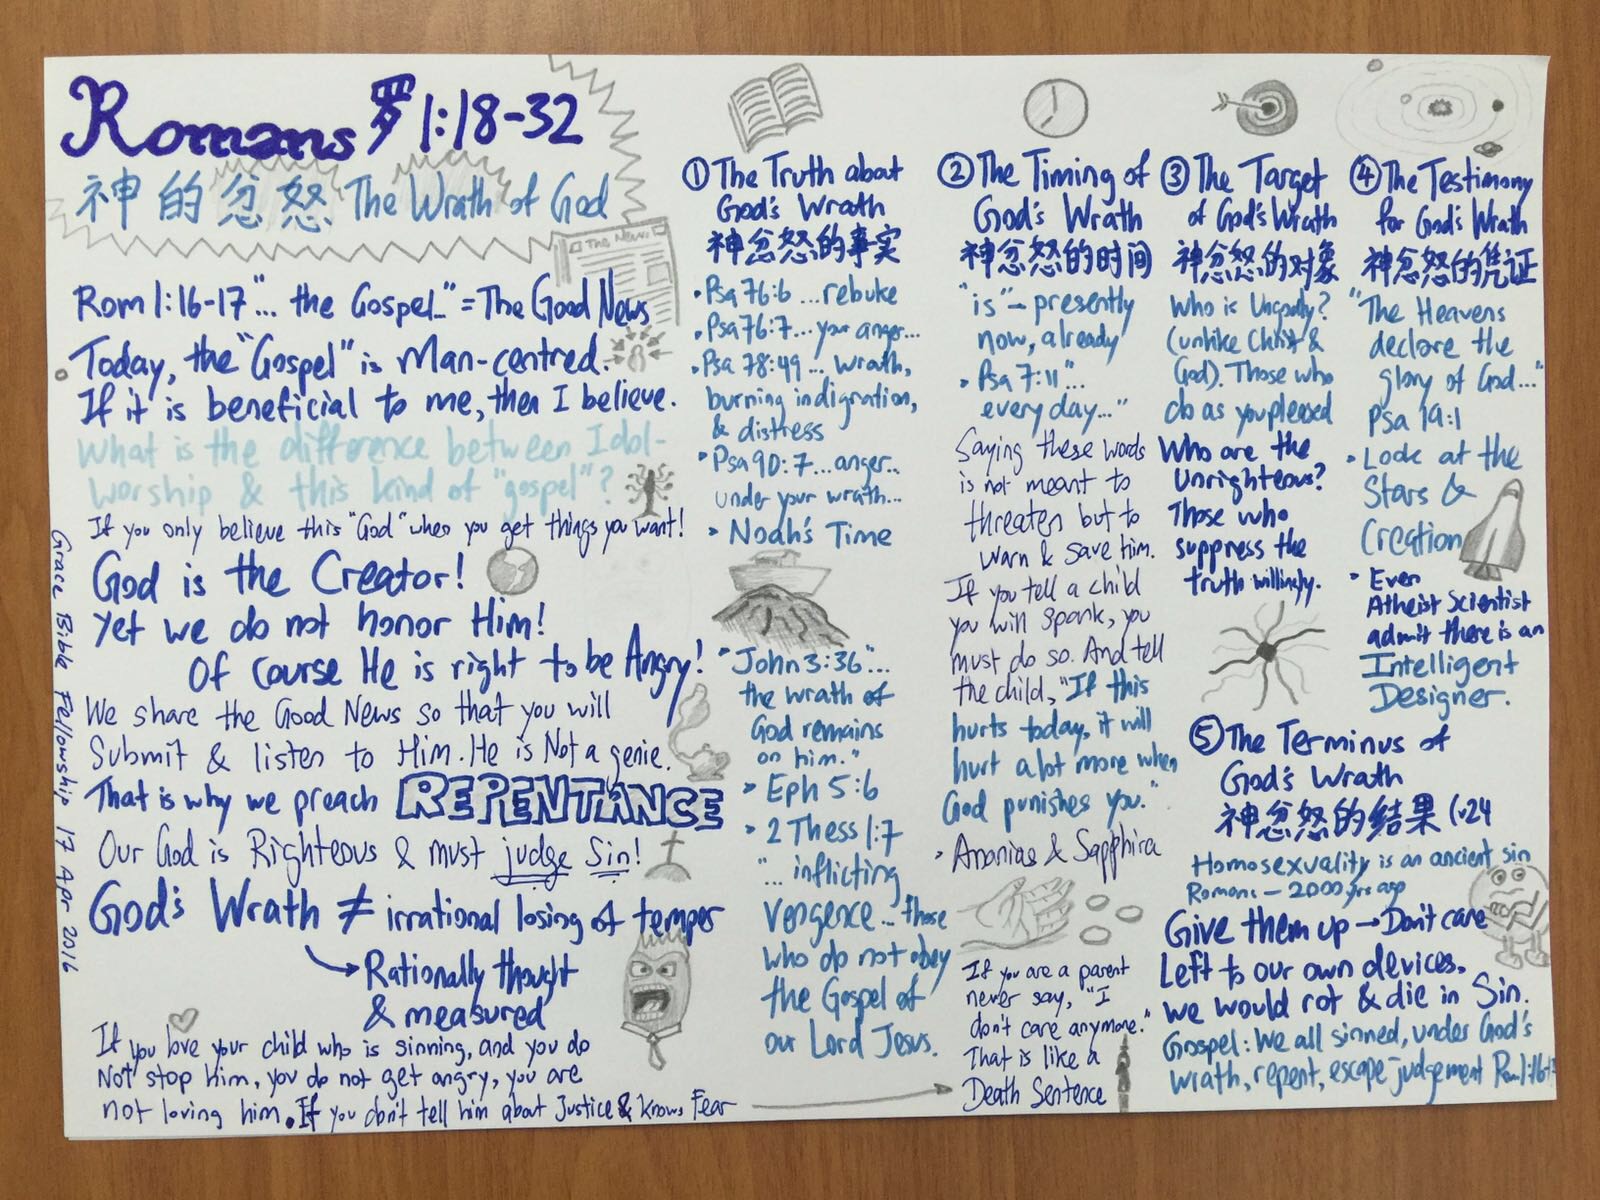 Romans 罗 1:18-32
神的忿怒 The Wrath of God
The News
Rom 1:16-17 "... the Gospel..." = The Good News
Today, the "Gospel" is Man-centred.
If it is beneficial to me, then I believe.
What is the difference between Idol-
worship & this kind of "gospel"?
If you only believe this "God" when you get things you want!
God is the Creator!
Yet we do not honor Him!
Of course He is right to be Angry!
We share the Good News so that you will
Submit & listen to Him. He is Not a genie.
That is why we preach REPENTANCE
Our God is Righteous & must judge Sin!
God's Wrath ≠ irrational losing of temper
Rationally thought
& measured
If you love your child who is sinning, and you do
Not stop him, you do not get angry, you are
not loving him. If you don't tell him about Justice & Knows Fear
Grace Bible Fellowship 17 Apr 2016
① The Truth about
God's Wrath
神忿怒的事实
• Psa 76:6 ... rebuke
• Psa 76:7 ... your anger...
• Psa 78:49 ... wrath,
burning indigration,
& distress
• Psa 90:7 ... anger...
under your wrath...
• Noah's Time
• "John 3:36"...
the wrath of
God remains
on him."
• Eph 5:6
• 2 Thess 1:7
"... inflicting
vengence ... those
who do not obey
the Gospel of
our Lord Jesus.
② The Timing of
God's Wrath
神忿怒的时间
"is" – presently
now, already
• Psa 7:11 "...
every day..."
Saying these words
is not meant to
threaten but to
warn & save him.
If you tell a child
you will spank, you
must do so. And tell
the child, "If this
hurts today, it will
hurt a lot more when
God punishes you."
• Ananias & Sapphira
If you are a parent
never say, "I
don't care anymore."
That is like a
Death Sentence
③ The Target
of God's Wrath
神忿怒的对象
Who is Ungodly?
(unlike Christ &
God). Those who
do as you pleased
Who are the
Unrighteous?
Those who
suppress the
truth willingly.
④ The Testimony
for God's Wrath
神忿怒的凭证
"The Heavens
declare the
glory of God..."
Psa 19:1
• Look at the
Stars &
Creation
• Even
Atheist Scientist
admit there is an
Intelligent
Designer.
⑤ The Terminus of
God's Wrath
神忿怒的结果 (v24
Homosexuality is an ancient sin
Romans – 2000 yrs ago
Give them up → Don't care
Left to our own devices.
We would rot & die in Sin.
Gospel: We all sinned, under God's
wrath, repent, escape judgement Rom 1:16-